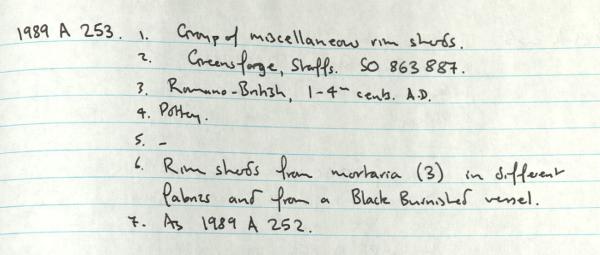 1989 A 253. 1. Group of miscellaneous rim sherds.
2. Greensforge, Staffs. SO 863 887.
3. Romano-British, 1-4th cents. A.D.
4. Pottery.
5. -
6. Rim sherds from mortaria (3) in different
fabrics and from a Black Burnished vessel.
7. As 1989 A 252.